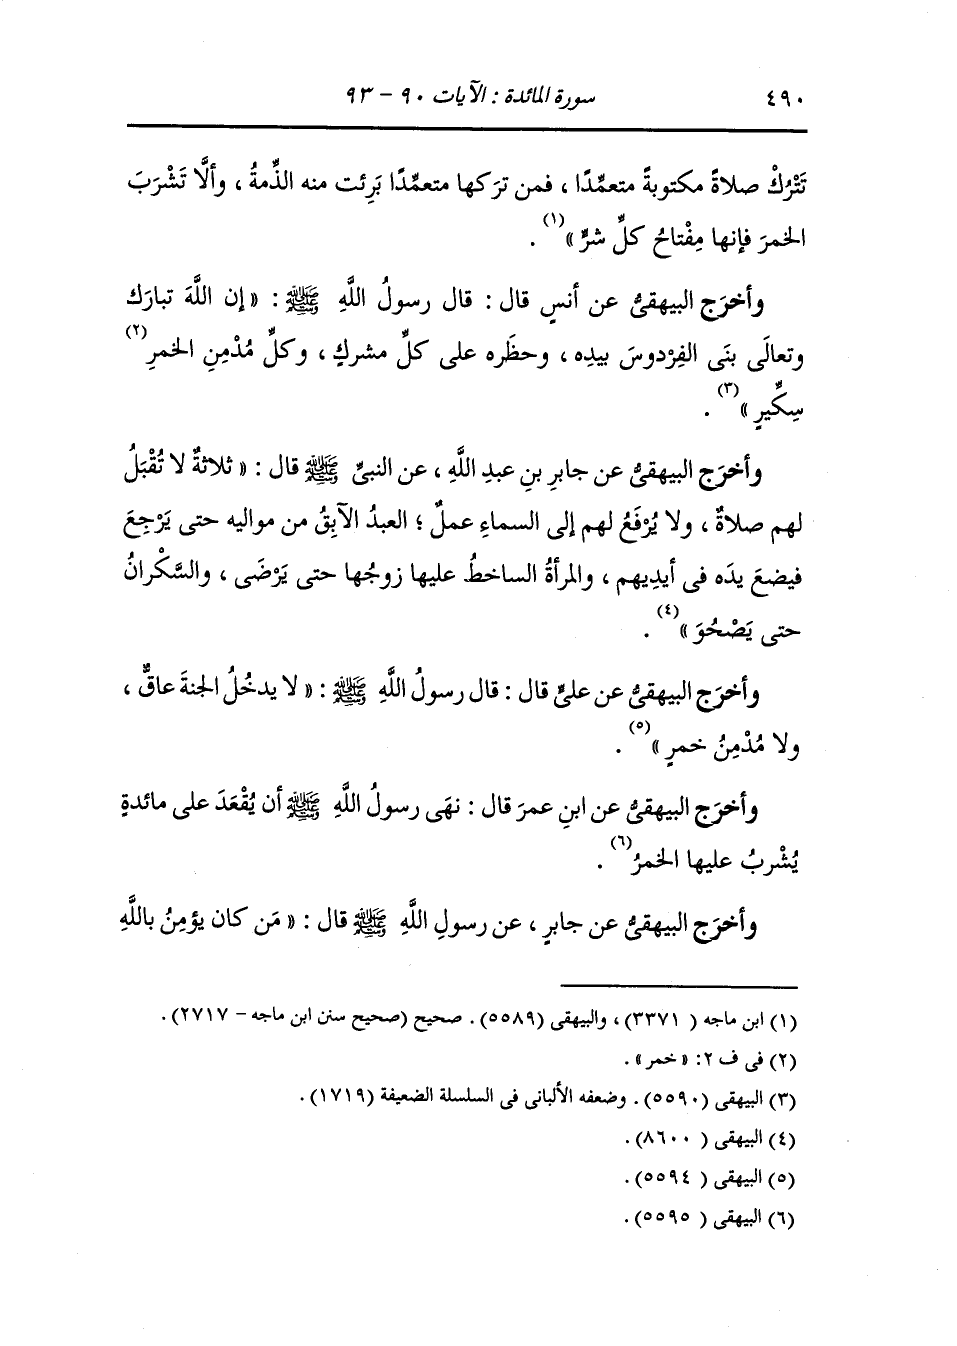 ٤٩٠ سورة المائدة : الآيات ٩٠ - ٩٣
تَتْرُكْ صلاةً مكتوبةً متعمِّدًا ، فمن تركها متعمِّدًا بَرِئت منه الذِّمةُ ، وألَّا تَشْرَبَ
الخمرَ فإنها مِفْتاحُ كلِّ شرٍّ »(١) .
وأخرَج البيهقىُّ عن أنسٍ قال : قال رسولُ اللَّهِ ﷺ : « إن اللَّهَ تبارَك
وتعالَى بنَى الفِرْدوسَ بيدِه ، وحظَره على كلِّ مشركٍ ، وكلِّ مُدْمِنِ الخمرِ(٢)
سِكِّيرٍ »(٣) .
وأخرَج البيهقىُّ عن جابرِ بنِ عبدِ اللَّهِ ، عن النبىِّ ﷺ قال : « ثلاثةٌ لا تُقْبَلُ
لهم صلاةٌ ، ولا يُرْفَعُ لهم إلى السماءِ عملٌ ؛ العبدُ الآبِقُ من مواليه حتى يَرْجِعَ
فيضعَ يدَه فى أيدِيهم ، والمرأةُ الساخطُ عليها زوجُها حتى يَرْضَى ، والسَّكْرانُ
حتى يَصْحُوَ »(٤) .
وأخرَج البيهقىُّ عن علىٍّ قال : قال رسولُ اللَّهِ ﷺ : « لا يدخُلُ الجنةَ عاقٌّ ،
ولا مُدْمِنُ خمرٍ »(٥) .
وأخرَج البيهقىُّ عن ابنِ عمرَ قال : نهَى رسولُ اللَّهِ ﷺ أن يُقْعَدَ على مائدةٍ
يُشْربُ عليها الخمرُ(٦) .
وأخرَج البيهقىُّ عن جابرٍ ، عن رسولِ اللَّهِ ﷺ قال : « مَن كان يؤمِنُ باللَّهِ
(١) ابن ماجه ( ٣٣٧١) ، والبيهقى (٥٥٨٩) . صحيح (صحيح سنن ابن ماجه - ٢٧١٧) .
(٢) فى ف ٢: « خمر » .
(٣) البيهقى (٥٥٩٠) . وضعفه الألبانى فى السلسلة الضعيفة (١٧١٩) .
(٤) البيهقى ( ٨٦٠٠) .
(٥) البيهقى ( ٥٥٩٤) .
(٦) البيهقى ( ٥٥٩٥) .